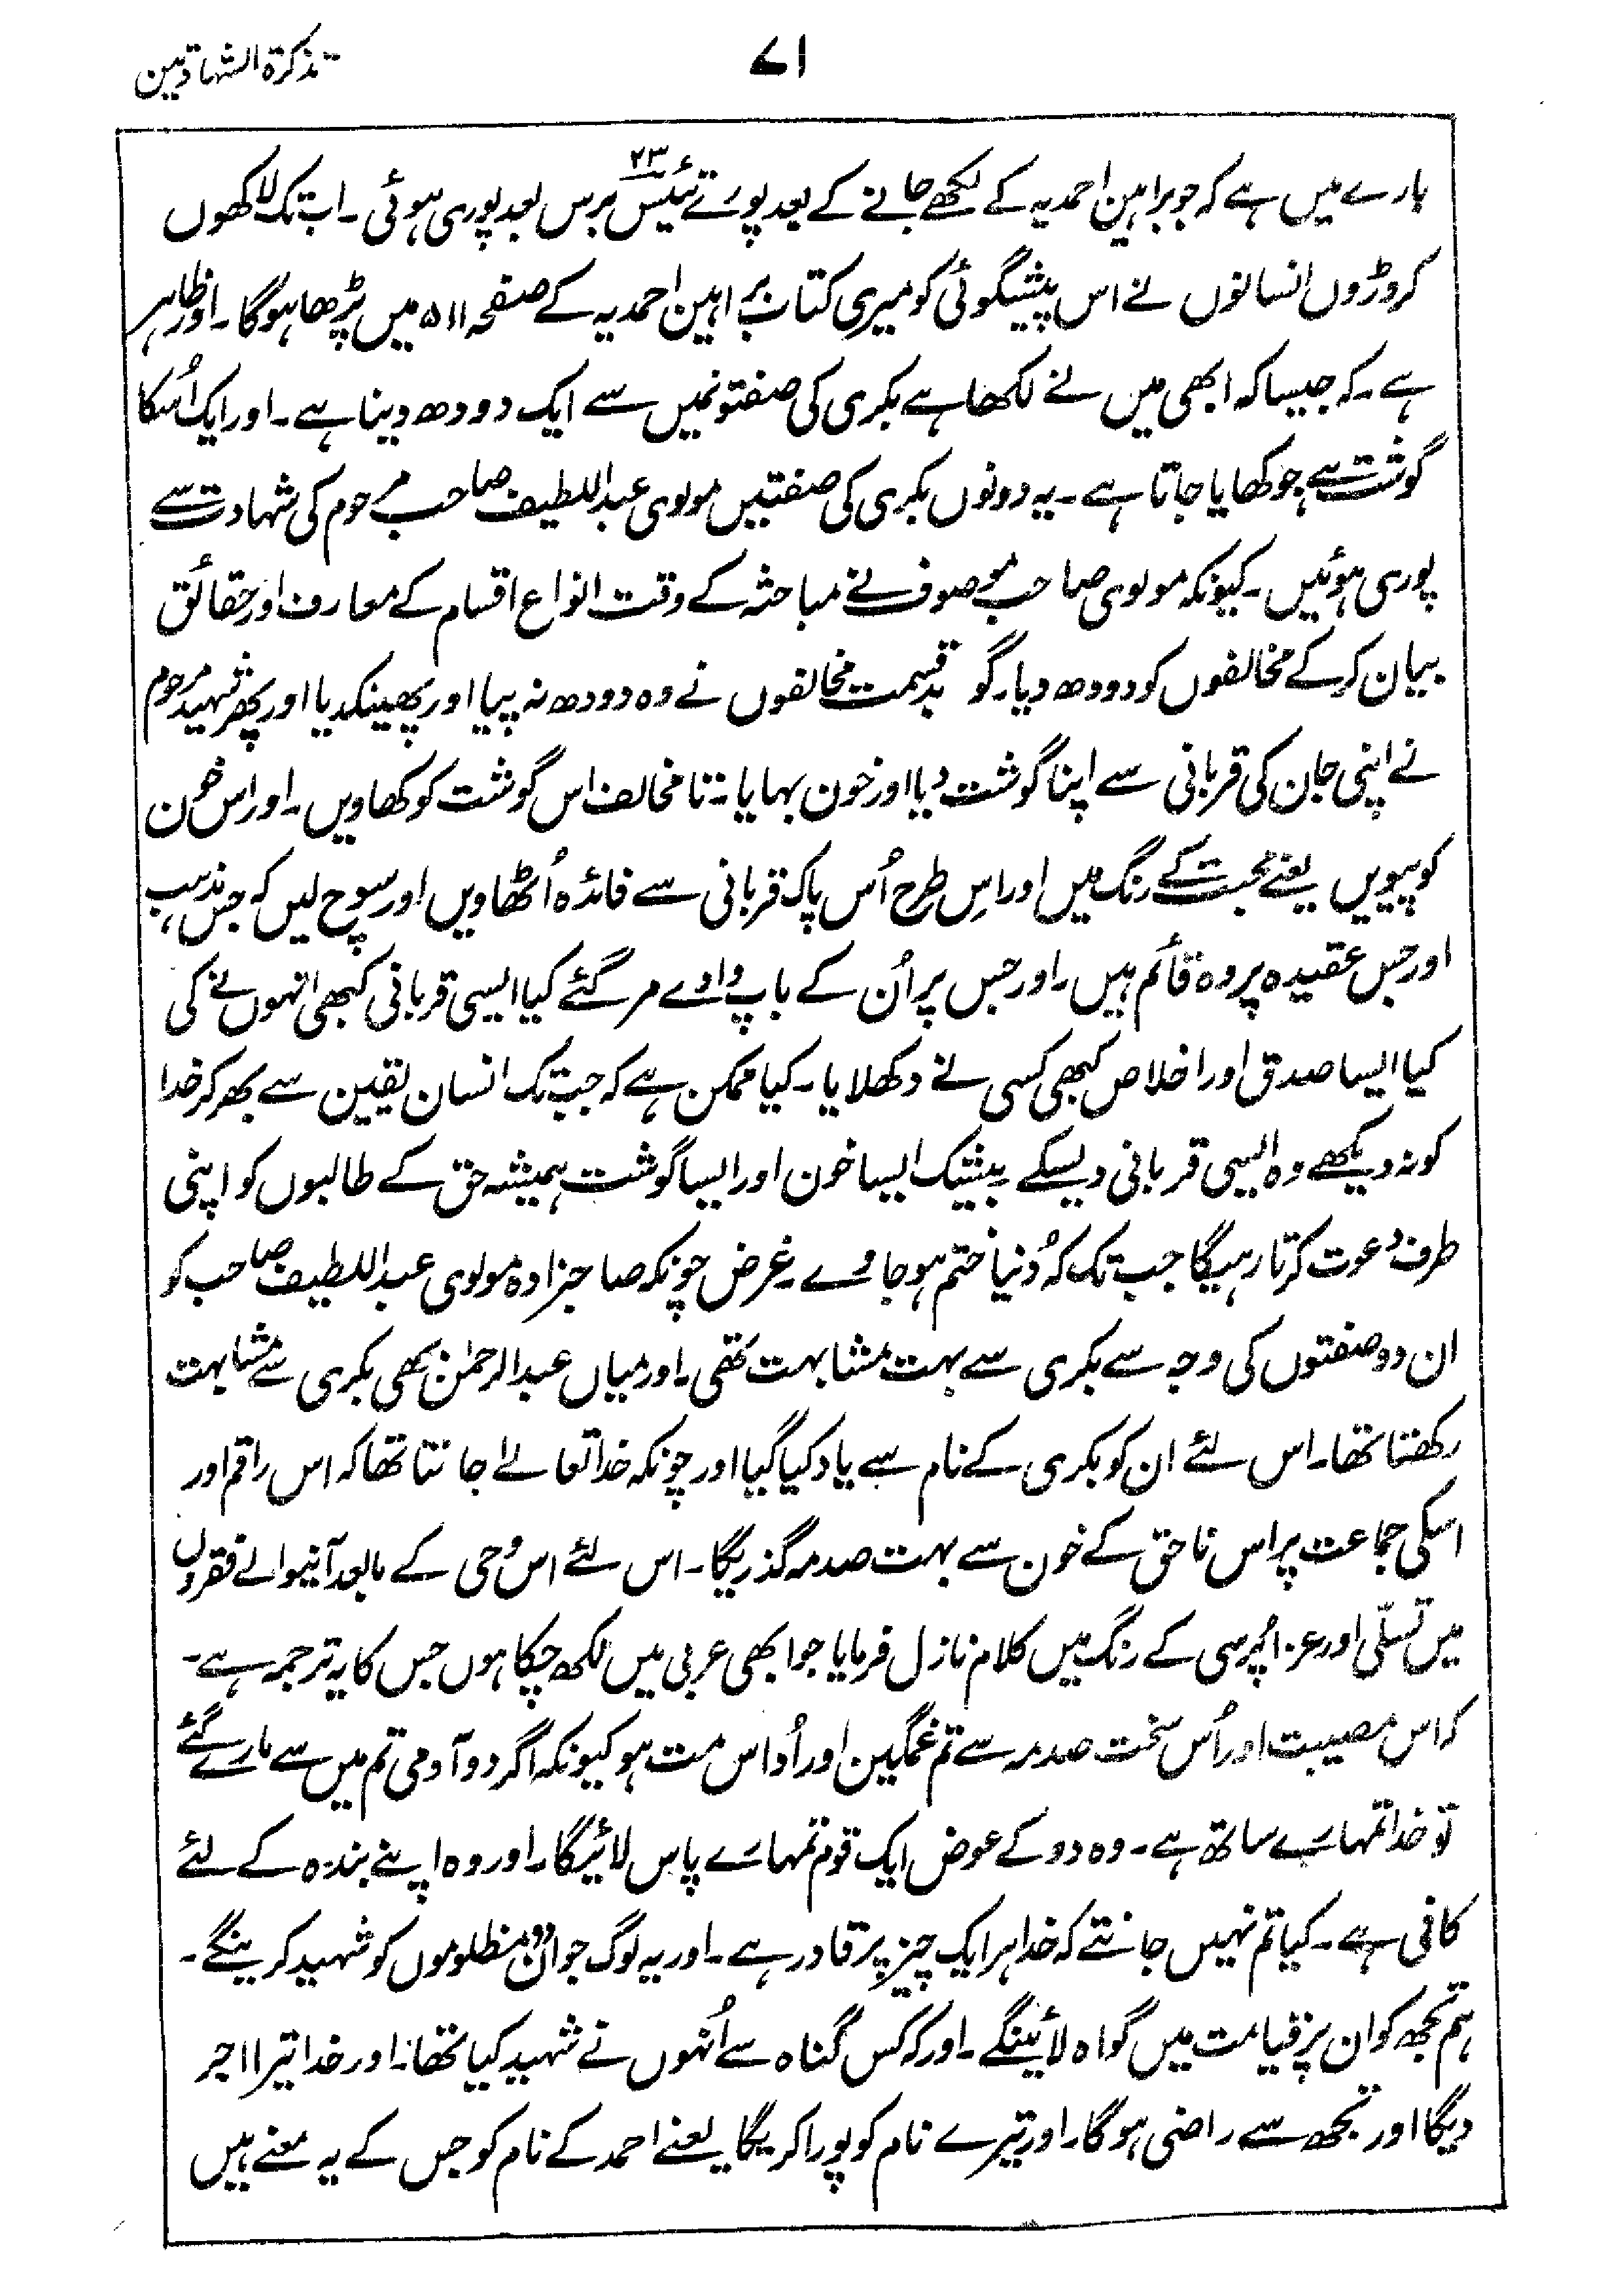 تذکرۃ الشہادتین
۷۱
بارے میں ہے کہ جو براہین احمدیہ کے لکھے جانے کے بعد پورے تئیس ۲۳ برس بعد پوری ہوئی۔ اب تک لاکھوں
کروڑوں انسانوں نے اس پیشگوئی کو میری کتاب براہین احمدیہ کے صفحہ ۵۱۱ میں پڑھا ہوگا۔ اور ظاہر
ہے۔ کہ جیسا کہ ابھی میں نے لکھا ہے بکری کی صفتونمیں سے ایک دودھ دینا ہے۔ اور ایک اُسکا
گوشت ہے جو کھایا جاتا ہے۔ یہ دونوں بکری کی صفتیں مولوی عبداللطیف صاحب مرحوم کی شہادت سے
پوری ہوئیں۔ کیونکہ مولوی صاحب موصوف نے مباحثہ کے وقت انواع اقسام کے معارف اور حقائق
بیان کرکے مخالفوں کو دودھ دیا۔ گو بدقسمت مخالفوں نے وہ دودھ نہ پیا اور پھینکدیا اور پھر شہید مرحوم
نے اپنی جان کی قربانی سے اپنا گوشت دیا اور خون بہایا۔ تا مخالف اس گوشت کو کھاویں۔ اور اس خون
کو پیویں یعنے محبت کے رنگ میں اور اِس طرح اُس پاک قربانی سے فائدہ اُٹھاویں اور سوچ لیں کہ جس مذہب
اور جس عقیدہ پر وہ قائم ہیں۔ اور جس پر اُن کے باپ دادے مر گئے کیا ایسی قربانی کبھی انہوں نے کی
کیا ایسا صدق اور اخلاص کبھی کسی نے دکھلایا۔ کیا ممکن ہے کہ جب تک انسان یقین سے بھر کر خدا
کو نہ دیکھے وہ ایسی قربانی دیسکے۔ بیشک ایسا خون اور ایسا گوشت ہمیشہ حق کے طالبوں کو اپنی
طرف دعوت کرتا رہیگا جب تک کہ دُنیا ختم ہو جاوے۔ غرض چونکہ صاحبزادہ مولوی عبداللطیف صاحب کو
ان دو صفتوں کی وجہ سے بکری سے بہت مشابہت تھی۔ اور میاں عبدالرحمٰن بھی بکری سے مشابہت
رکھتا تھا۔ اس لئے ان کو بکری کے نام سے یاد کیا گیا اور چونکہ خدا تعالےٰ جانتا تھا کہ اس راقم اور
اسکی جماعت پر اس ناحق کے خون سے بہت صدمہ گذریگا۔ اس لئے اس وحی کے مابعد آنیوالے فقروں
میں تسلّی اور عزا پُرسی کے رنگ میں کلام نازل فرمایا جو ابھی عربی میں لکھ چکا ہوں جس کا یہ ترجمہ ہے۔
کہ اس مصیبت اور اُس سخت صدمہ سے تم غمگین اور اُداس مت ہو کیونکہ اگر دو آدمی تم میں سے مارے گئے
تو خدا تمہارے ساتھ ہے۔ وہ دو کے عوض ایک قوم تمہارے پاس لائیگا۔ اور وہ اپنے بندہ کے لئے
کافی ہے۔ کیا تم نہیں جانتے کہ خدا ہر ایک چیز پر قادر ہے۔ اور یہ لوگ جو ان دو مظلوموں کو شہید کرینگے۔
ہم تجھ کو ان پر قیامت میں گواہ لائینگے۔ اور کہ کس گناہ سے اُنہوں نے شہید کیا تھا۔ اور خدا تیرا اجر
دیگا اور تجھ سے راضی ہوگا۔ اور تیرے نام کو پورا کریگا یعنے احمد کے نام کو جس کے یہ معنے ہیں